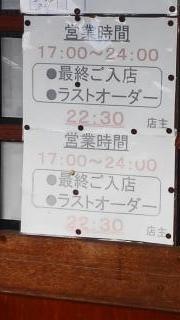 営業時間
17:00〜24:00
●最終ご入店
●ラストオーダー
22:30
店主
営業時間
17:00〜24:00
●最終ご入店
●ラストオーダー
22:30
店主